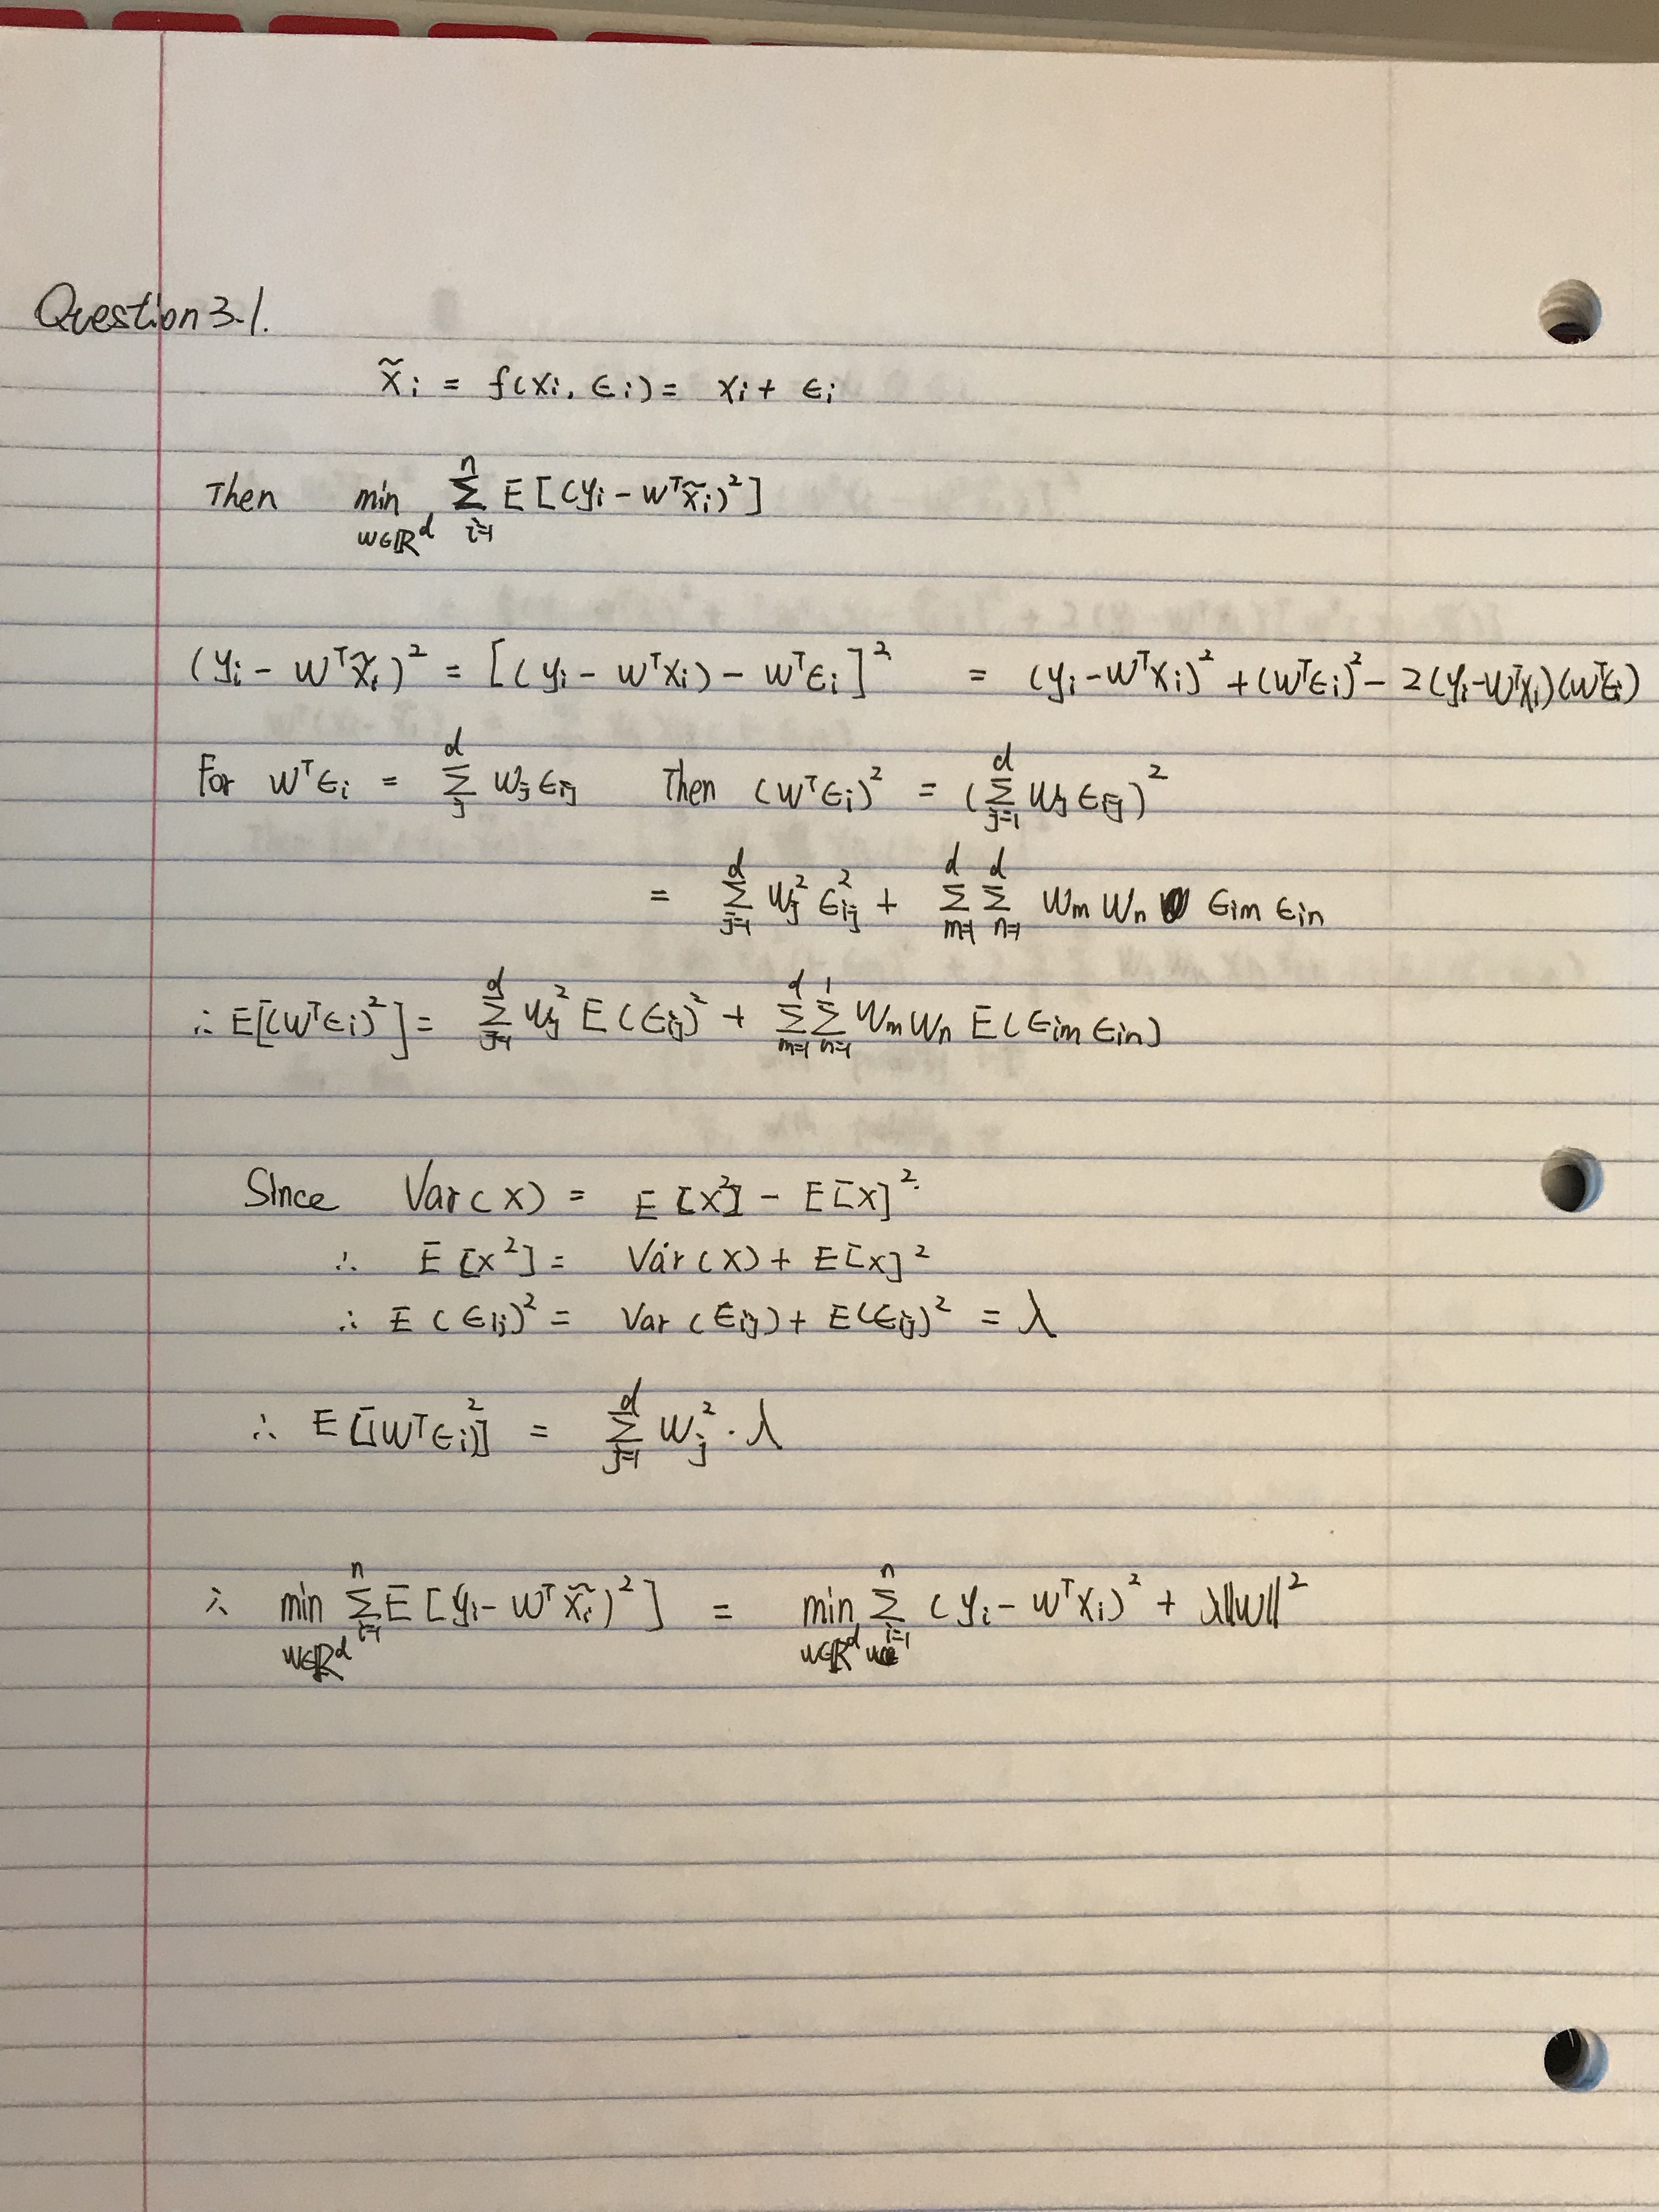 Question 3-1.
x̃ᵢ = f(xᵢ, ϵᵢ) = xᵢ + ϵᵢ
Then min_{w∈ℝ^d} Σ_{i=1}^{n} E[(yᵢ - wᵀx̃ᵢ)²]
(yᵢ - wᵀx̃ᵢ)² = [(yᵢ - wᵀxᵢ) - wᵀϵᵢ]² = (yᵢ - wᵀxᵢ)² + (wᵀϵᵢ)² - 2(yᵢ - wᵀxᵢ)(wᵀϵᵢ)
For wᵀϵᵢ = Σ_{j}^{d} w_j ϵ_{ij} Then (wᵀϵᵢ)² = (Σ_{j=1}^{d} w_j ϵ_{ij})²
= Σ_{j=1}^{d} w_j² ϵ_{ij}² + Σ_{m=1}^{d} Σ_{n=1}^{d} w_m w_n ϵ_{im} ϵ_{in}
∴ E[(wᵀϵᵢ)²] = Σ_{j=1}^{d} w_j² E(ϵ_{ij})² + Σ_{m=1}^{d} Σ_{n=1}^{1} w_m w_n E(ϵ_{im} ϵ_{in})
Since Var(x) = E[x²] - E[x]².
∴ E[x²] = Var(x) + E[x]²
∴ E(ϵ_{ij})² = Var(ϵ_{ij}) + E(ϵ_{ij})² = λ
∴ E[(wᵀϵᵢ)²] = Σ_{j=1}^{d} w_j² · λ
∴ min_{w∈ℝ^d} Σ_{i=1}^{n} E[yᵢ - wᵀx̃ᵢ)²] = min_{w∈ℝ^d} Σ_{i=1}^{n} (yᵢ - wᵀxᵢ)² + λ||w||²